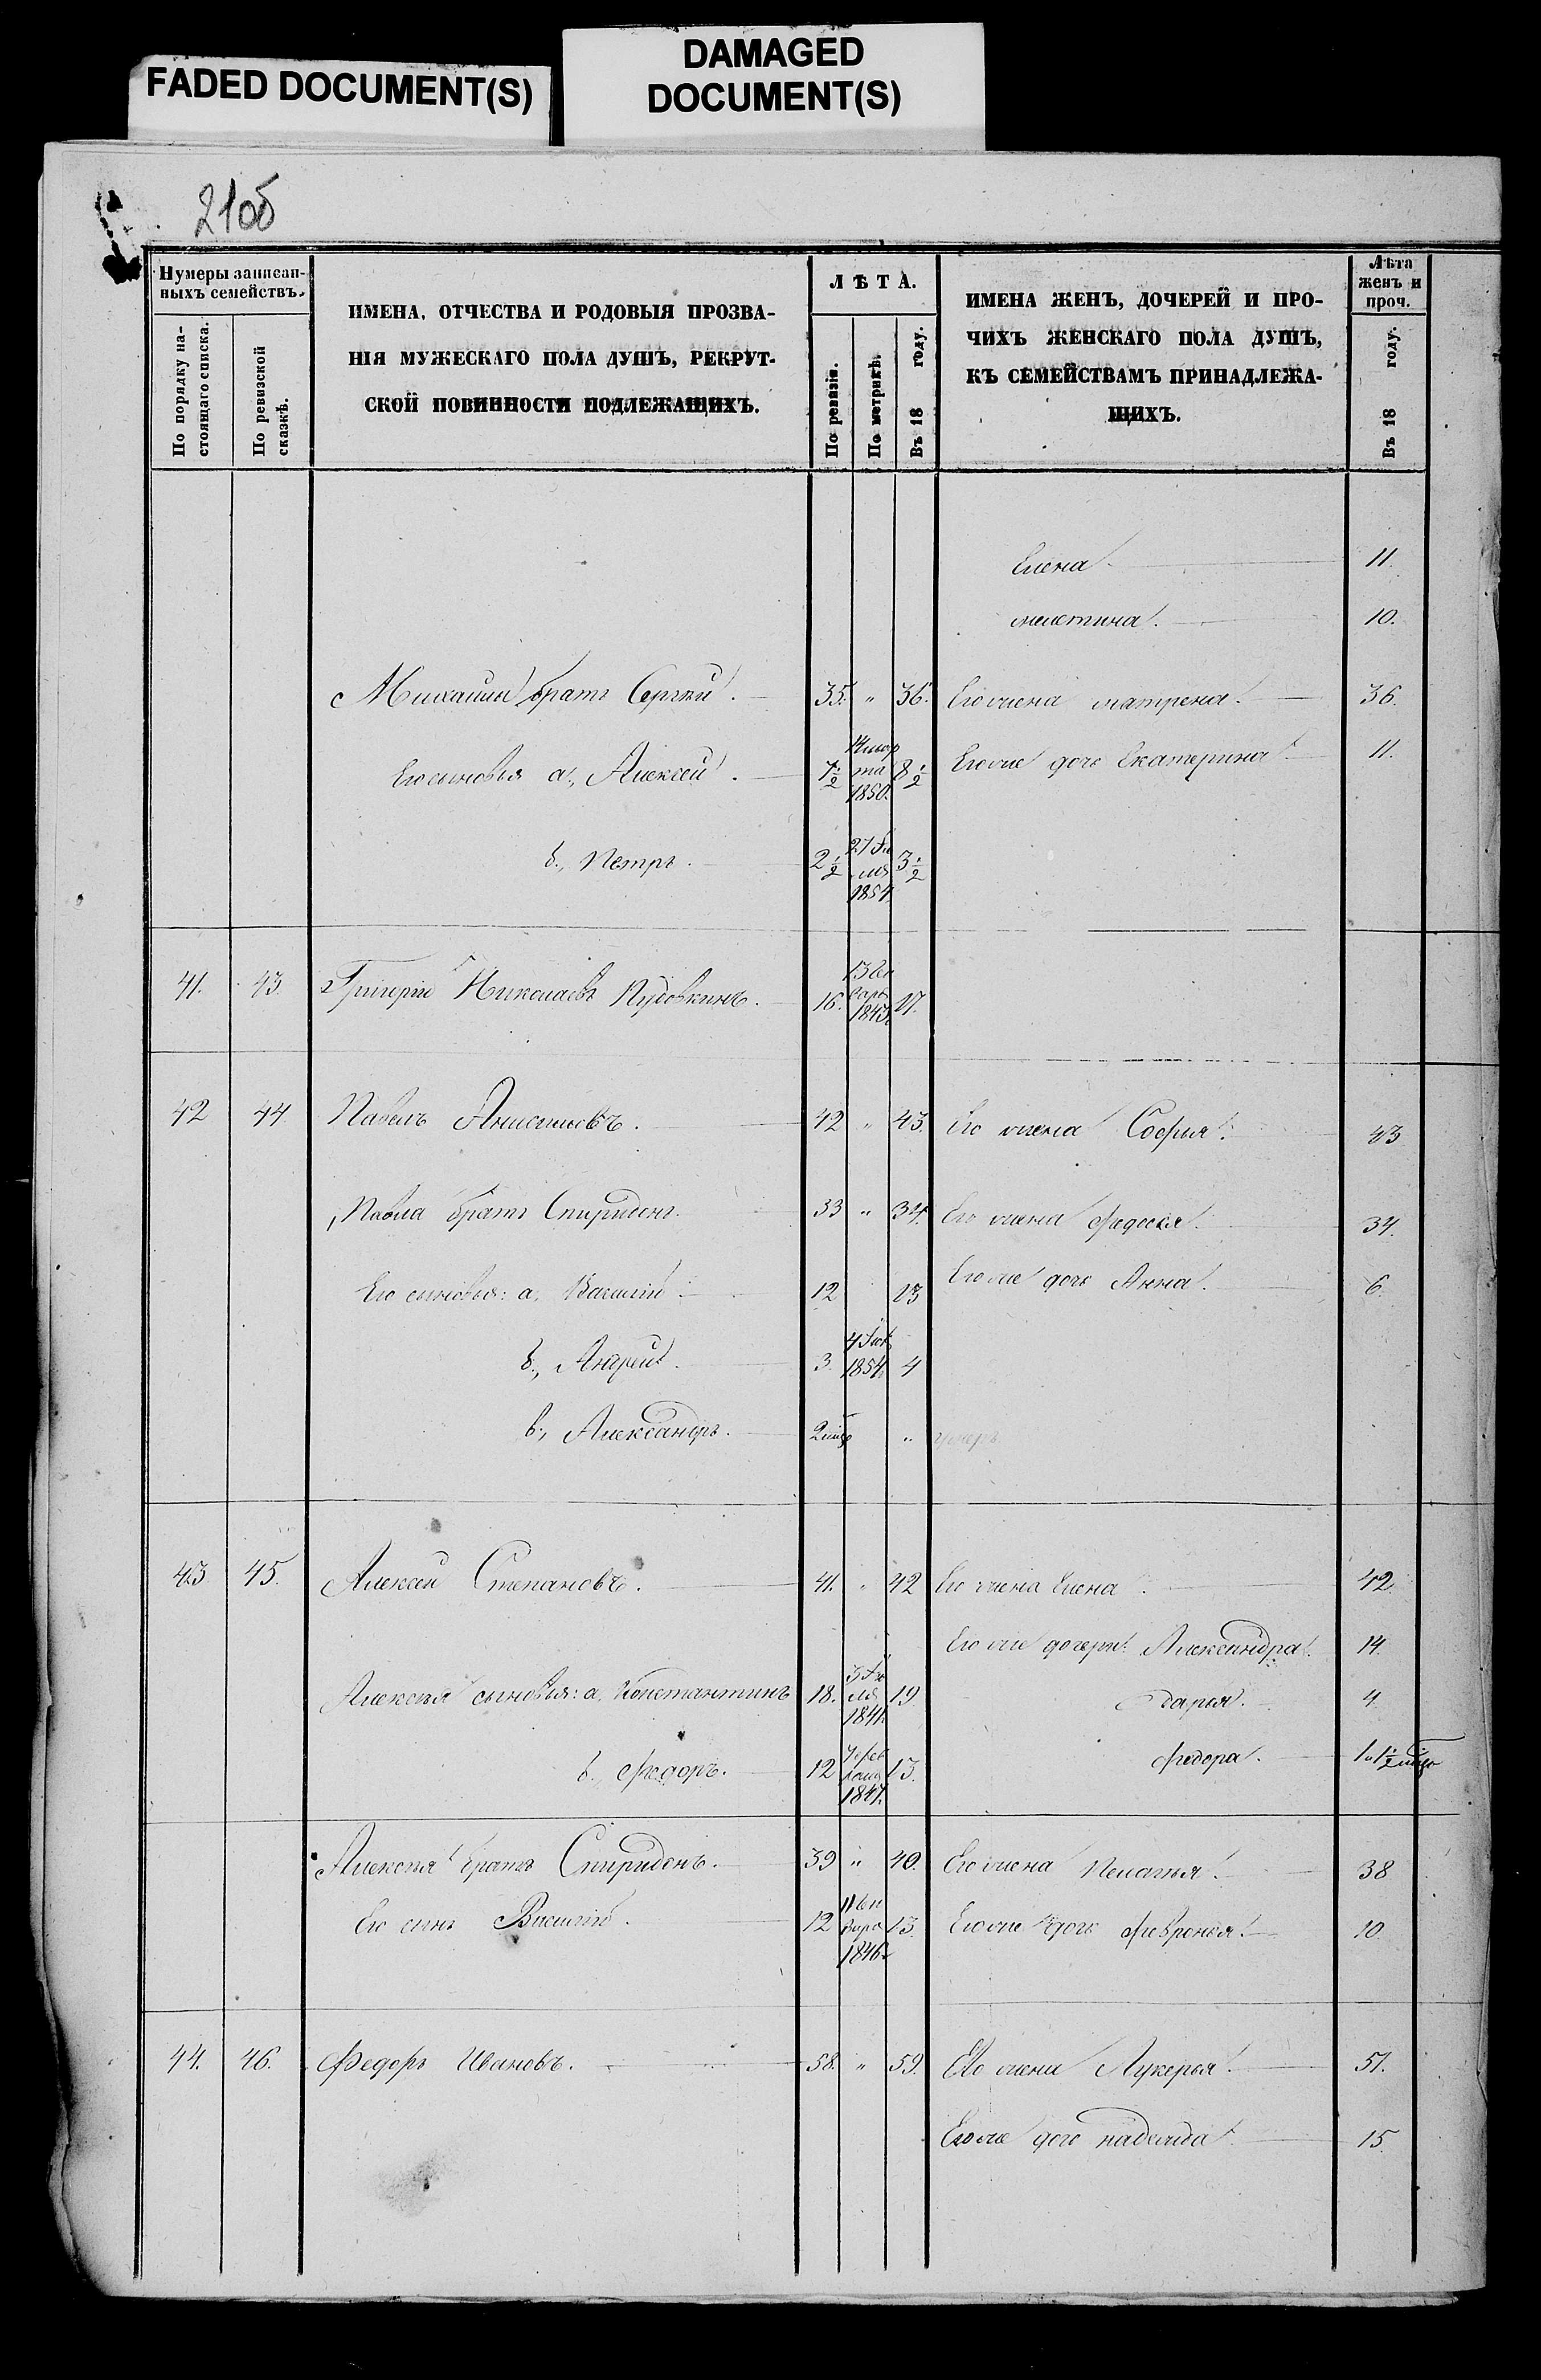 FADED DOCUMENT(S)
DAMAGED
DOCUMENT(S)
210б
Нумеры записан-
ныхъ семействъ.
По порядку на-
стоящаго списка.
По ревизской
сказкѣ.
ИМЕНА, ОТЧЕСТВА И РОДОВЫЯ ПРОЗВА-
НІЯ МУЖЕСКАГО ПОЛА ДУШЪ, РЕКРУТ-
СКОЙ ПОВИННОСТИ ПОДЛЕЖАЩИХЪ.
ЛѢТА.
По ревизіи.
По метрикѣ.
Въ 18 году.
ИМЕНА ЖЕНЪ, ДОЧЕРЕЙ И ПРО-
ЧИХЪ ЖЕНСКАГО ПОЛА ДУШЪ,
КЪ СЕМЕЙСТВАМЪ ПРИНАДЛЕЖА-
ЩИХЪ.
Лѣта
женъ и
проч.
Въ 18 году.
Елена 11.
10.
Михаила братъ Сергѣй. 35. " 36. Его жена матрена. 36.
Его сыновья а., Алексѣй. 7½ 14 мар та 1850. 8½ Его же дочь Екатерина 11.
б., Петръ. 2½ 27 1854. 3½
41. 43. Григорій Николаевъ Пудовкинъ. 16. 13 Ен варя 1843. 17.
42 44 Павелъ Анисимовъ. 42 " 43. Его жена Софья. 43
Павла братъ Спиридонъ. 33 " 34. Его жена федосья. 34.
Его сыновья: а. Василій 12 13 Его же дочь Анна. 6.
б., Андрей. 3. 4 1854 4
в., Александръ. " умеръ
43 45. Алексѣй Степановъ. 41. " 42 Его жена Елена. 42.
Его же дочери: Александра. 14.
Алексѣя сыновья: а. Константинъ 18. 3 1841. 19. дарья. 4.
б., федоръ. 12 фев 1847. 13. федора.
Алексѣя братъ Спиридонъ. 39 " 40. Его жена Пелагья. 38
Его сынъ Василій. 12 11 Ен варя 1846. 13. Его же дочь февронья. 10.
44. 46. Федоръ Ивановъ. 58. " 59. Его жена Лукерья. 57.
Его же дочь надежда 15.